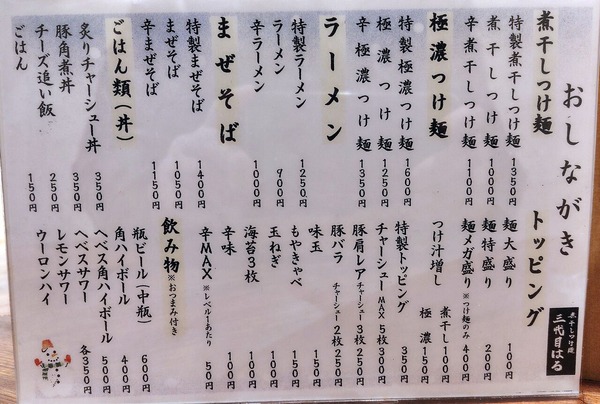 おしながき
煮干しつけ麺
三代目はる
煮干しつけ麺
特製煮干しつけ麺 1350円
煮干しつけ麺 1000円
辛煮干しつけ麺 1100円
極濃つけ麺
特製極濃つけ麺 1600円
極濃つけ麺 1250円
辛極濃つけ麺 1350円
ラーメン
特製ラーメン 1250円
ラーメン 900円
辛ラーメン 1000円
まぜそば
特製まぜそば 1400円
まぜそば 1050円
辛まぜそば 1150円
ごはん類(丼)
炙りチャーシュー丼 350円
豚角煮丼 350円
チーズ追い飯 250円
ごはん 150円
トッピング
麺大盛り 100円
麺特盛り 200円
麺メガ盛り※つけ麺のみ 400円
つけ汁増し 煮干し100円
極濃 150円
特製トッピング 350円
チャーシューMAX5枚 300円
豚肩レアチャーシュー3枚 250円
豚バラチャーシュー2枚 250円
味玉 150円
もやきゃべ 150円
玉ねぎ 100円
海苔3枚 100円
辛味 100円
辛MAX※レベル1あたり 50円
飲み物※おつまみ付き
瓶ビール(中瓶) 600円
角ハイボール 400円
ヘベス角ハイボール 500円
ヘベスサワー 各350円
レモンサワー
ウーロンハイ